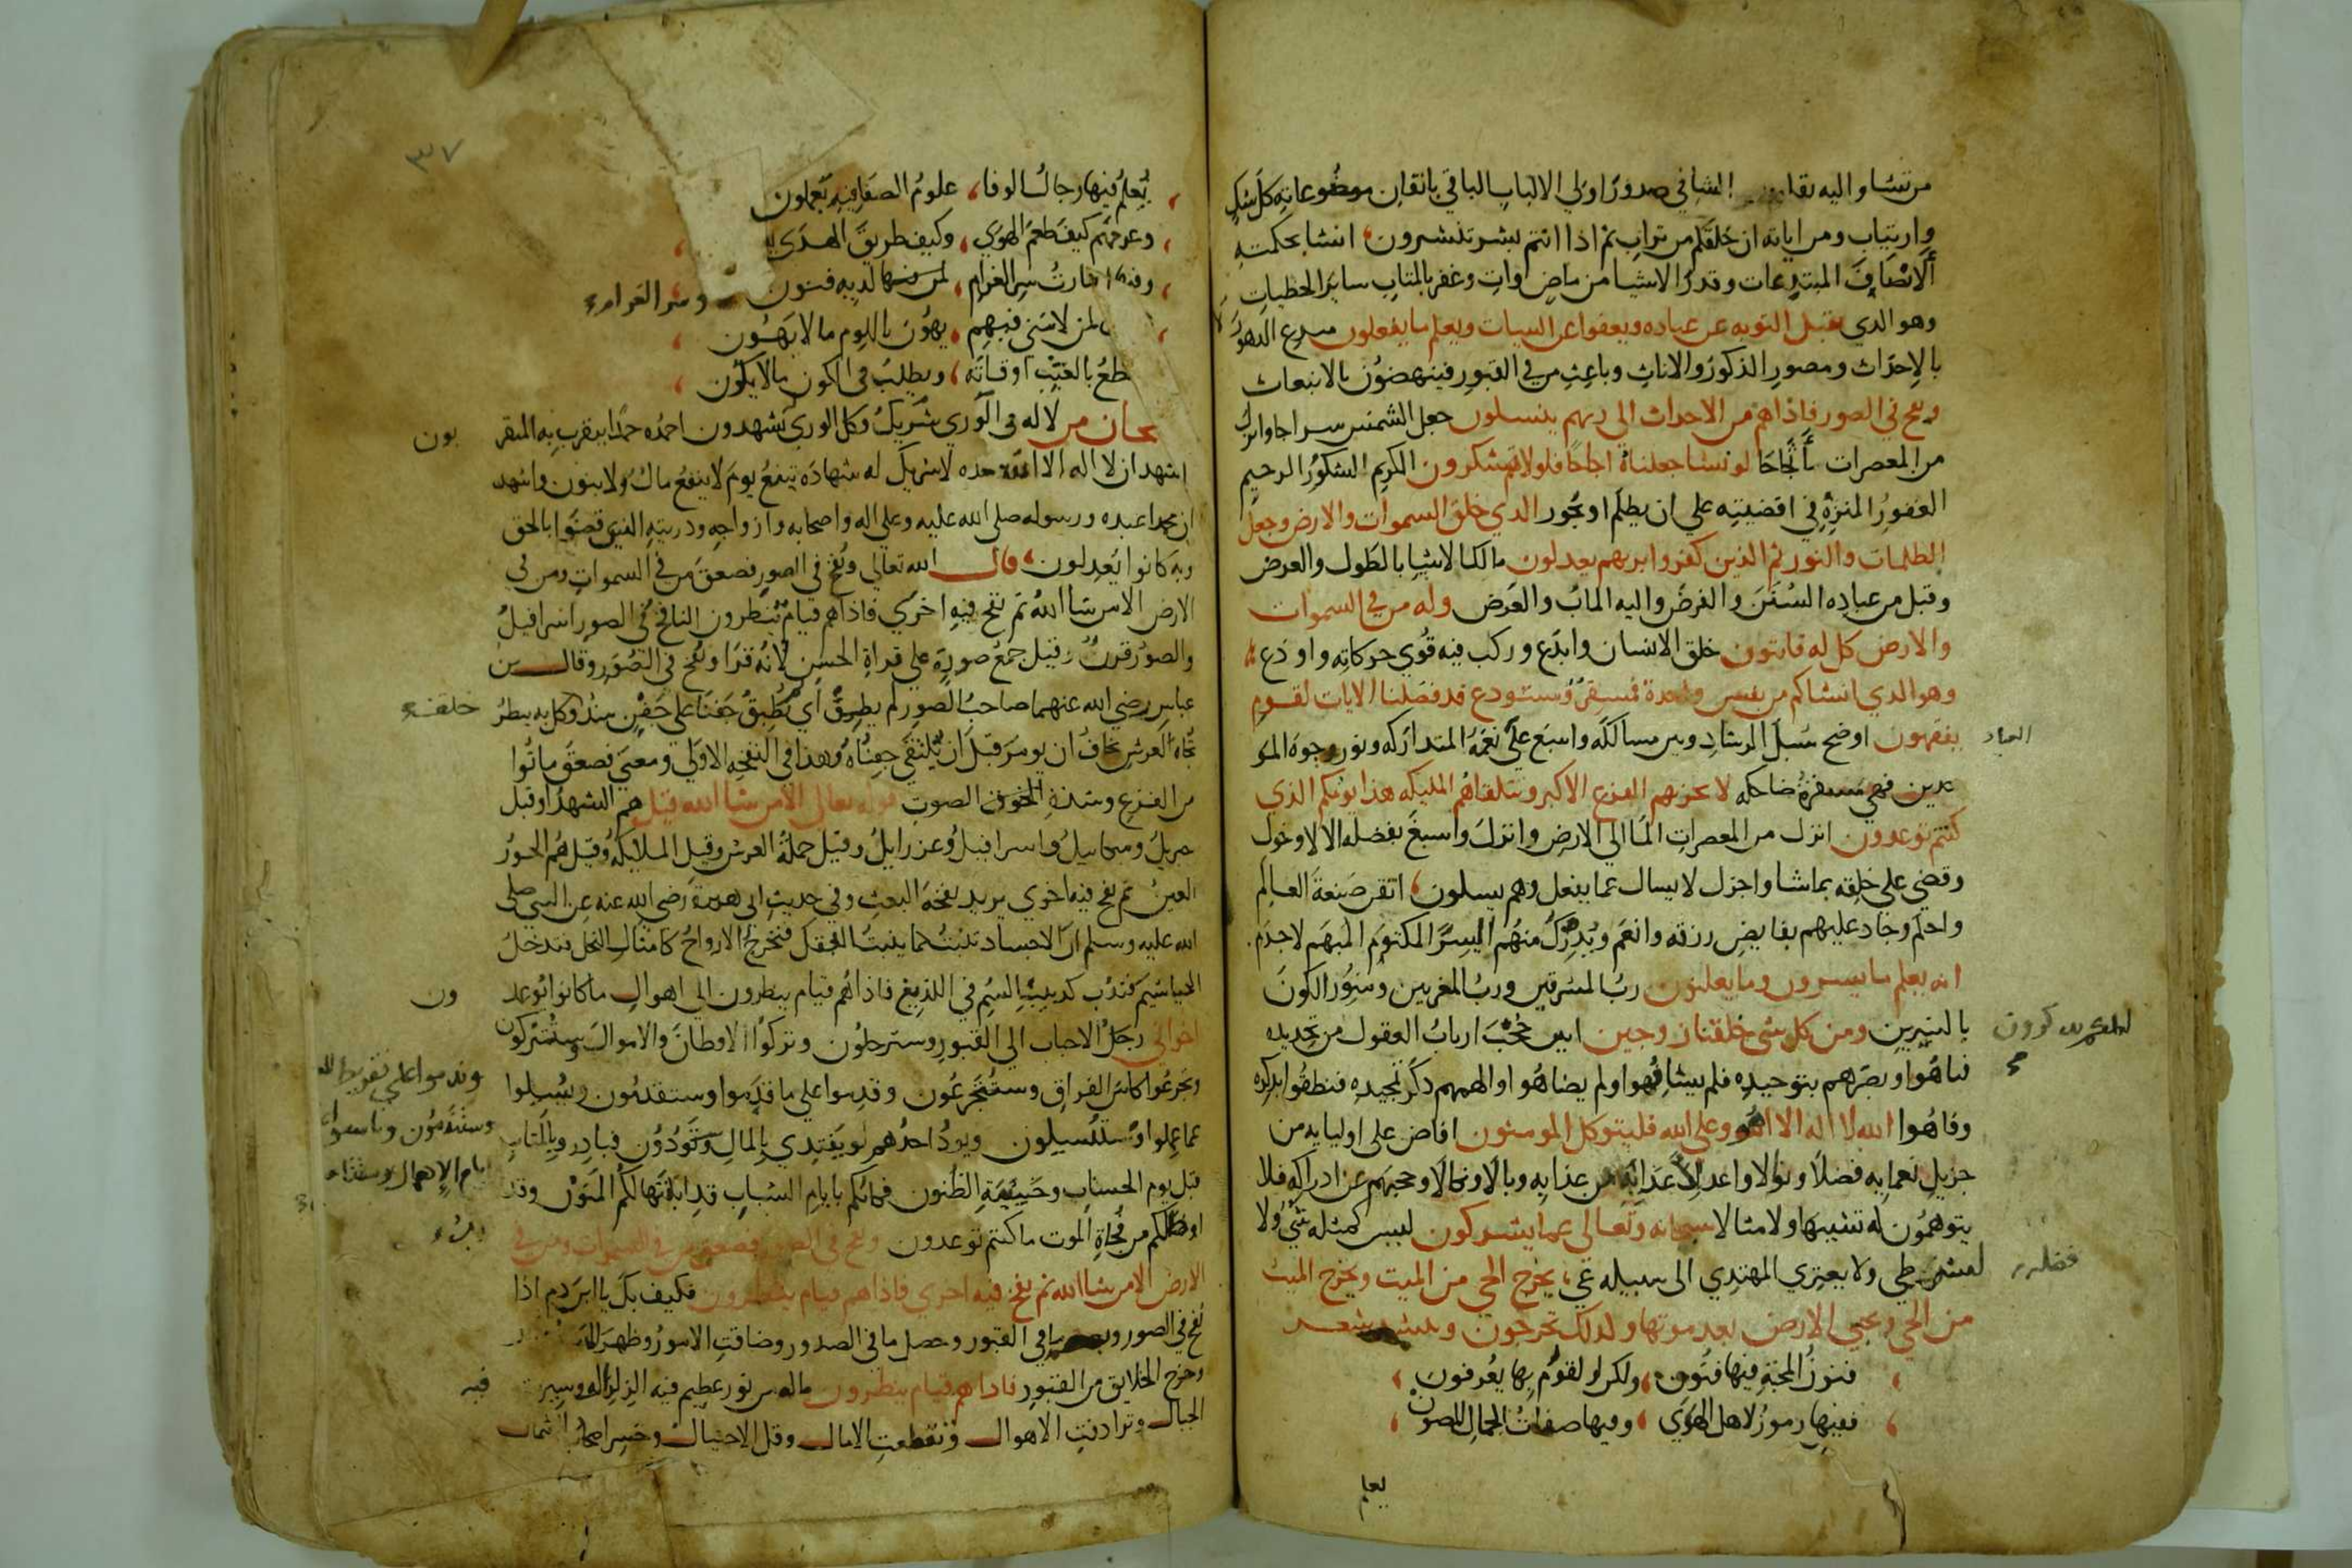 من تشا واليه تقلبون الشافي صدور اولي الالباب الباقي باتقان موضوعاته كل شك
وارتياب ومن اياته ان خلقكم من تراب ثم اذا انتم بشر تنتشرون انشا بحكمته
اصناف المبتدعات وقدر الاشيا من ماض وات وغفر بالمتاب ساير الخطيات
وهو الذي يقبل التوبه عن عباده ويعفوا عن السيات ويعلم ما يفعلون مبدع الدهور
بالاحداث ومصور الذكور والاناث وباعث من في القبور فينهضون بالانبعاث
ونفخ في الصور فاذا هم من الاجداث الى ربهم ينسلون جعل الشمس سراجا وانزل
من المعصرات ماً ثجاجا لو نشا جعلناه اجاجا فلولا تشكرون الكريم الشكور الرحيم
الغفور المنزه في اقضيته على ان يظلم او يجور الذي خلق السموات والارض وجعل
الظلمات والنور ثم الذين كفروا بربهم يعدلون مالك الاشيا بالطول والعرض
وقبل من عباده السنن والفرض واليه الماب والعرض وله من في السموات
والارض كل له قانتون خلق الانسان وابدع وركب فيه قوي حركاته واودع
وهو الذي انشاكم من نفس واحدة فمستقر ومستودع قد فصلنا الايات لقوم
يفقهون اوضح سبل الرشاد وبين مسالكه واسبغ على نعمه المتداركه ونور وجوه المو
العباد
حدين فهي مسفرة ضاحكه لا يحزنهم الفزع الاكبر وتتلقاهم المليكه هذا يومكم الذي
كنتم توعدون انزل من المعصرات الما الي الارض وانزل واسبغ بفضله الالا وخول
وقضي على خلقه بما شا واجزل لا يسال عما يفعل وهم يسلون اتقن صنعة العالم
واحكم وجاد عليهم بفايض رزقه وانعم ويدرك منهم السر المكتوم المبهم لا جرم
انه يعلم ما يسرون وما يعلنون رب المشرقين ورب المغربين ومنور الكون
بالنيرين ومن كل شي خلقنا زوجين حجب ارباب العقول من تحديده
لعلكم تذكرون
فتاهوا وبصرهم بتوحيده فلم يشافهوا ولم يضاهوا والهمهم ذكر تمجيده فنطقوا بذكره
وفاهوا الله لا اله الا هو وعلى الله فليتوكل المومنون افاض على اوليايه من
جزيل نعمايه فضلا ونوالا واعد لاعدايه من عذابه وبالا ونكالا وحجبهم عن ادراكه فلا
يتوهمون له تشبيها ولا مثالا سبحانه وتعالى عما يشركون ليس كمثله شي ولا
ولا يعتري المهتدي الى سبيله غي يخرج الحي من الميت ويخرج الميت
فضله
من الحي ويحيي الارض بعد موتها وكذلك تخرجون شعر
فنون المحبة فيها فنون ولكن لقوم بها يعرفون
ففيها رموز لاهل الهوي وفيها صفات الجمال المصون
يعلم
٣٧
يعلم فيها رجال الوفا علوم الصفا فبه يعملون
وعرفهم كيف طعم الهوي وكيف طريق الهدي
سر الغرام لديه فنون وسر الغرام
لمن لامني فيهم يهون باللوم ما لا يهون
بالغيب اوقاته ويطلب في الكون ما لا يكون
سبحان من لا له في الوري شريك وكل الوري تشهدون احمده حمدا يتقرب به المتقر
بون
اشهد ان لا اله الا الله وحده لا شريك له شهادة تنفع يوم لا ينفع مال ولا بنون واشهد
ان محمدا عبده ورسوله صلى الله عليه وعلى اله واصحابه وازواجه وذريته الذين قضوا بالحق
وبه كانوا يعدلون قال الله تعالي ونفخ في الصور فصعق من في السموات ومن في
الارض الا من شا الله ثم نفخ فيه اخري فاذا هم قيام ينظرون النافخ في الصور اسرافيل
والصور قرن وقيل جمع صورة على قراة الحسن لانه قرا ونفخ في الصور وقال بن
عباس رضي الله عنهما صاحب الصور لم يطرق اي يطبق جفنا على جفن منذ وكل به ينظر
خلقه
تجاه العرش يخاف ان يومر قبل ان يلتقي جفناه وهذا في النفخه الاولي ومعني فصعق ماتوا
من الفزع وشدة الخوف الصوت قوله تعالي الا من شا الله قيل هم الشهدا وقيل
جبريل وميكاييل واسرافيل وعزراييل وقيل حملة العرش وقيل الملايكه وقيل هم الحور
العين ثم نفخ فيه اخري يريد نفخة البعث وفي حديث ابي هريرة رضي الله عنه عن النبي صلى
الله عليه وسلم ان الاجساد تنبت كما ينبت البقل فتخرج الارواح كامثال النحل فتدخل
الخياشيم فتدب كدبيب السم في اللذيغ فاذا هم قيام ينظرون الي اهوال ما كانوا يوعد
ون
اخواني رحل الاحباب الي القبور وسترحلون وتركوا الاوطان والاموال وستتركون
وتجرعوا كاس الفراق وستتجرعون وقدموا على ما قدموا وستقدمون وسيلوا
وندموا على تفريط
وستندمون وتاسفوا
عما عملوا وستسيلون ويود احدهم لو يفتدي بالمال وستودون فبادروا بالمتاب
ايام الاهمال
قبل يوم الحساب وخيبة الظنون فكانكم بايام الشباب قد ابلتها لكم المنون وقد
اوظلكم من فجاة الموت ما كنتم توعدون ونفخ في الصور فصعق من في السموات ومن في
الارض الا من شا الله ثم نفخ فيه اخري فاذا هم قيام ينظرون فكيف بك يا ابن ادم اذا
نفخ في الصور وبعثر ما في القبور وحصل ما في الصدور وضاقت الامور وظهر
وخرج الخلايق من القبور فاذا هم قيام ينظرون ماله من نور عظيم فيه الزلزال وسيرت
فيه
الجبال وترادفت الاهوال وتقطعت الامال وقل الاحتيال وخسر اصحاب الشمال